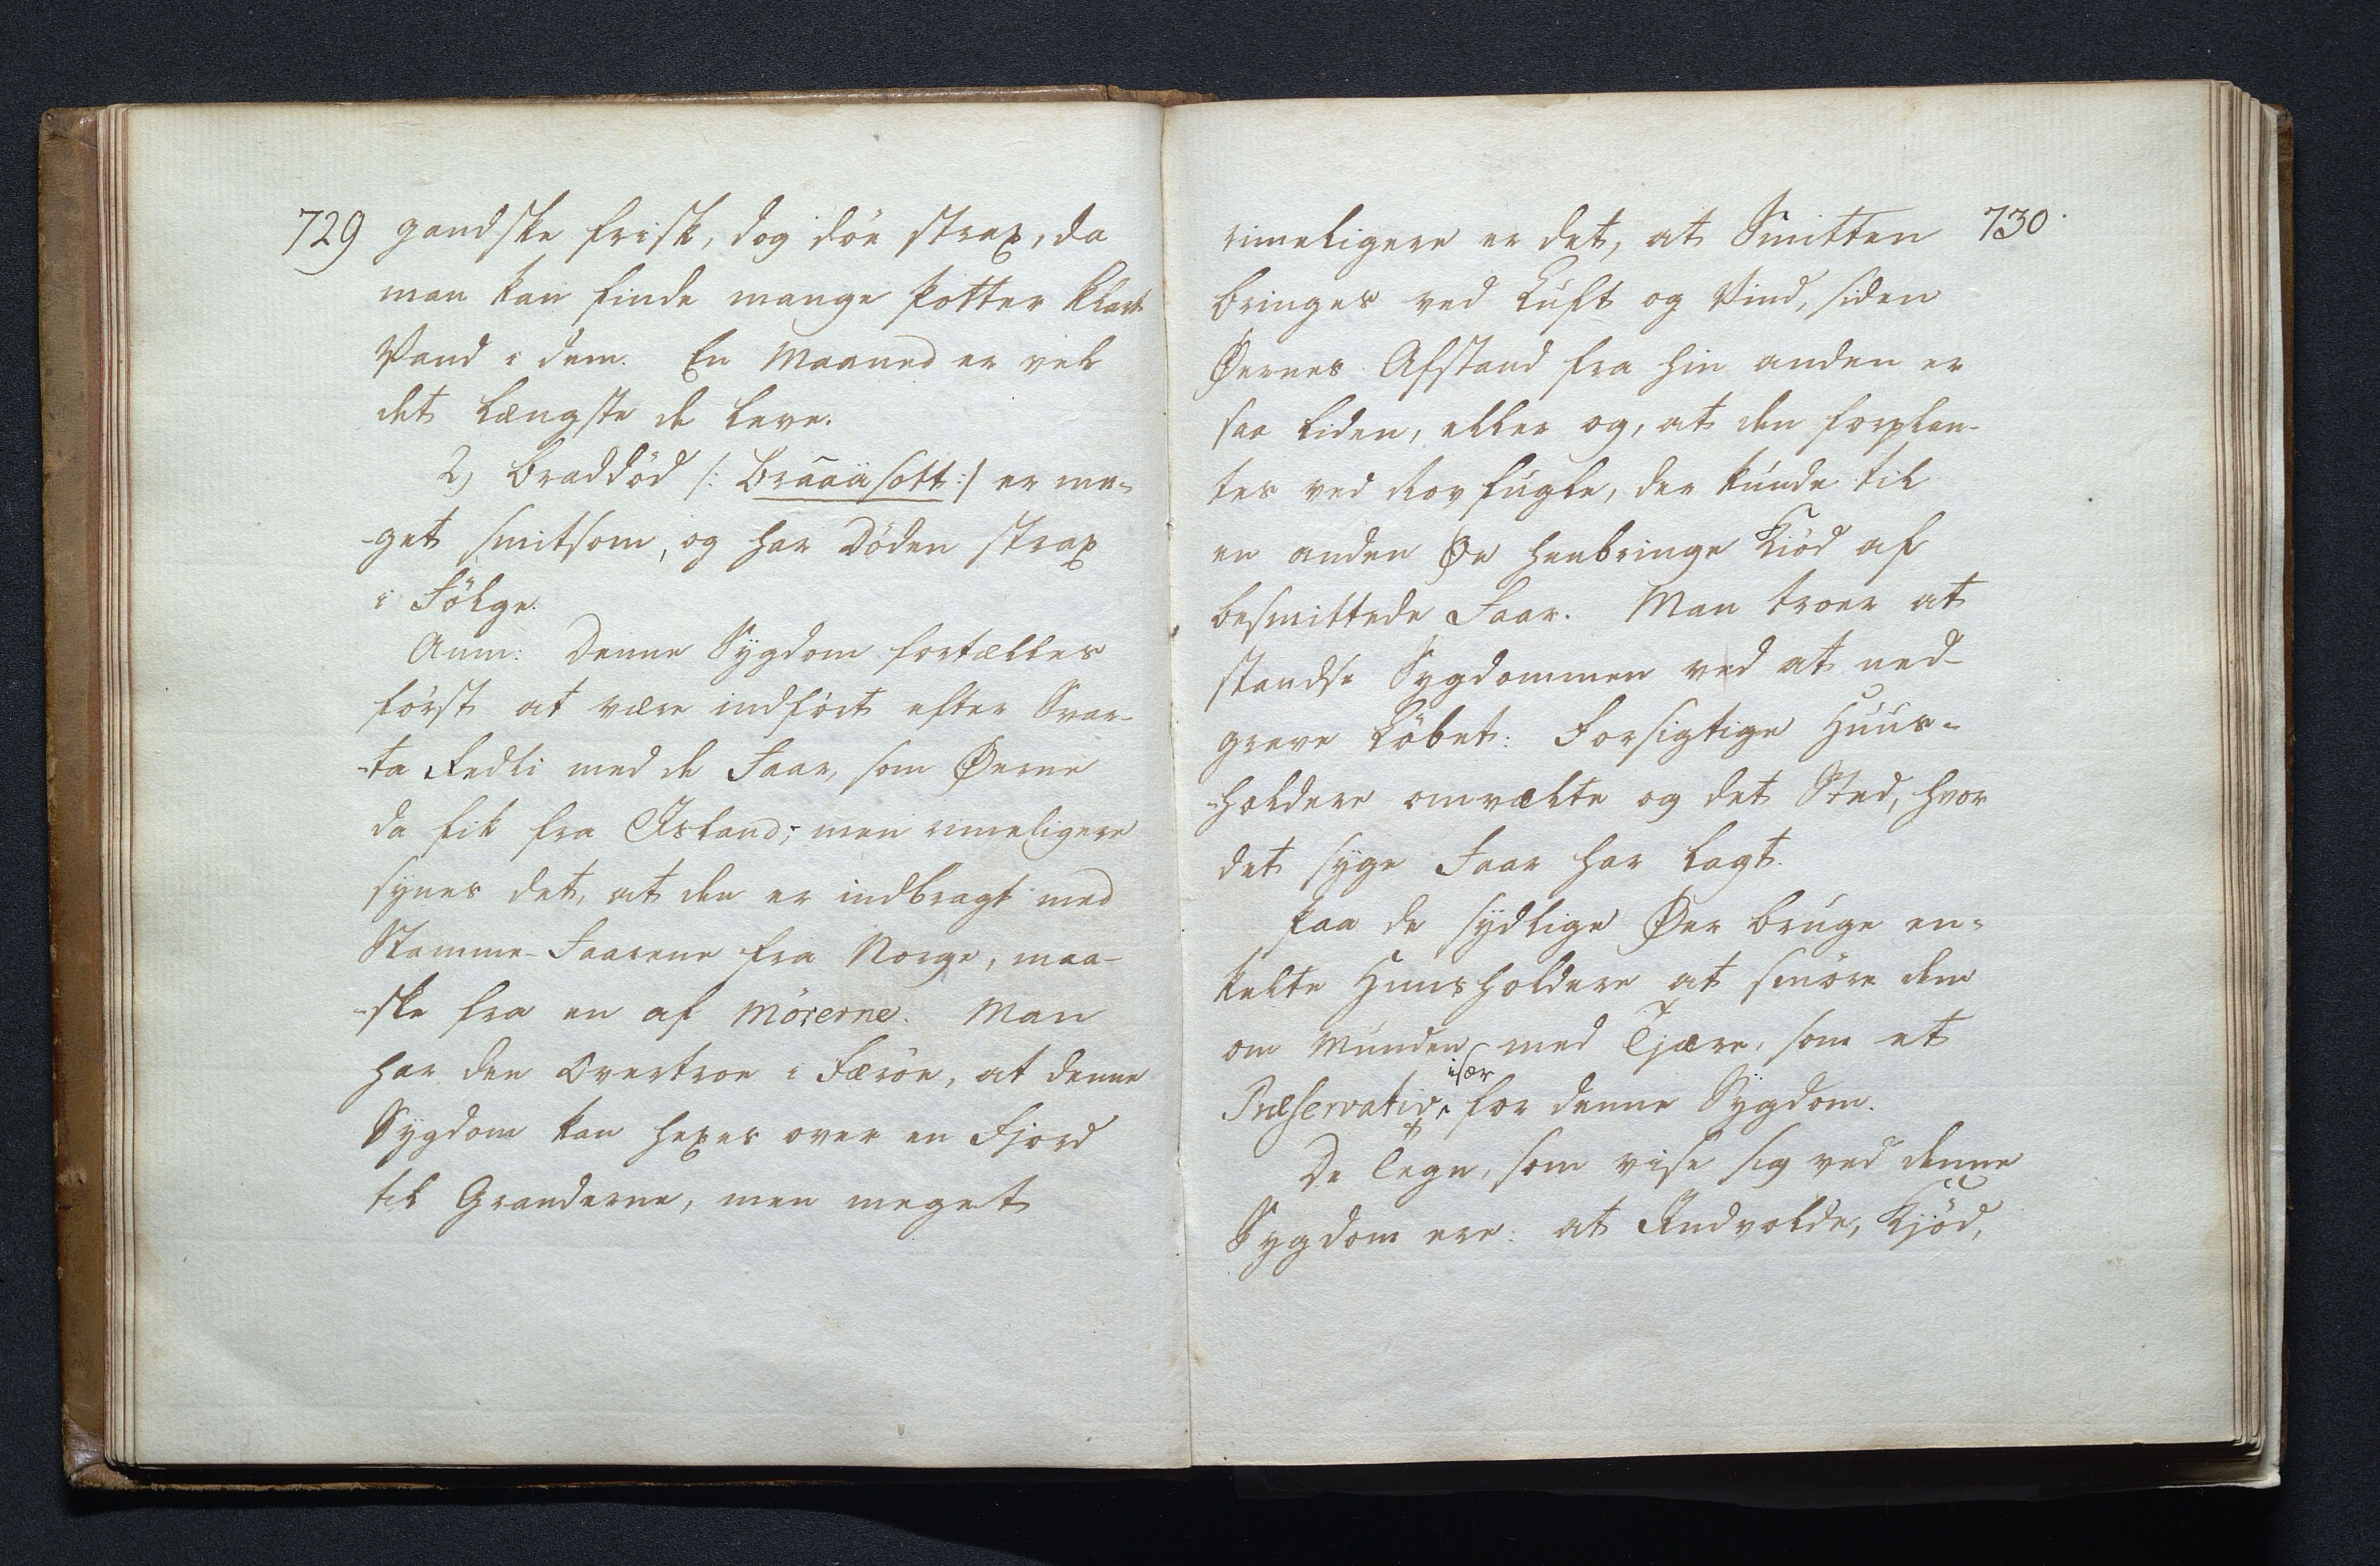 729 gandske frisk, dog döe strax, da
man kan finde mange Potter klart
Vand i dem. En Maaned er vel
det længste de leve.
2) Braddöd /: Bräaäsott :/ er me-
-get smitsom, og har Döden strax
i Fölge.
Anm: Denne Sÿgdom fortælles
först at være indfört efter Svar-
-ta Fedli med de Faar, som Øerne
da fik fra Island; men rimeligere
synes det, at den er indbragt med
Stamme-Faarene fra Norge, maa-
-ske fra en af Mörerne. Man
har den Overtroe i Færöe, at denne
Sygdom kan hexes over en Fjord
til Granderne, men meget
rimeligere er det, at Smitten 730.
bringes ved Luft og Vind, siden
Øernes Afstand fra hin anden er
saa liden, eller og, at den forplan-
tes ved Rovfugle, der kunde til
en anden Øe henbringe Kiöd af
besmittede Faar. Man troer at
standse Sygdommen ved at ned-
grave Löbet: Forsigtige Huus-
-holdere omvælte og det Sted, hvor
det syge Faar har lagt.
Paa de sydlige Øer bruge en-
kelte Huusholdere at smöre dem
om Munden med Tjære, som et
især
Præservativ, for denne Sÿgdom.
De Tegn, som vise sig ved denne
Sygdom ere: at Indvolde, Kjöd,